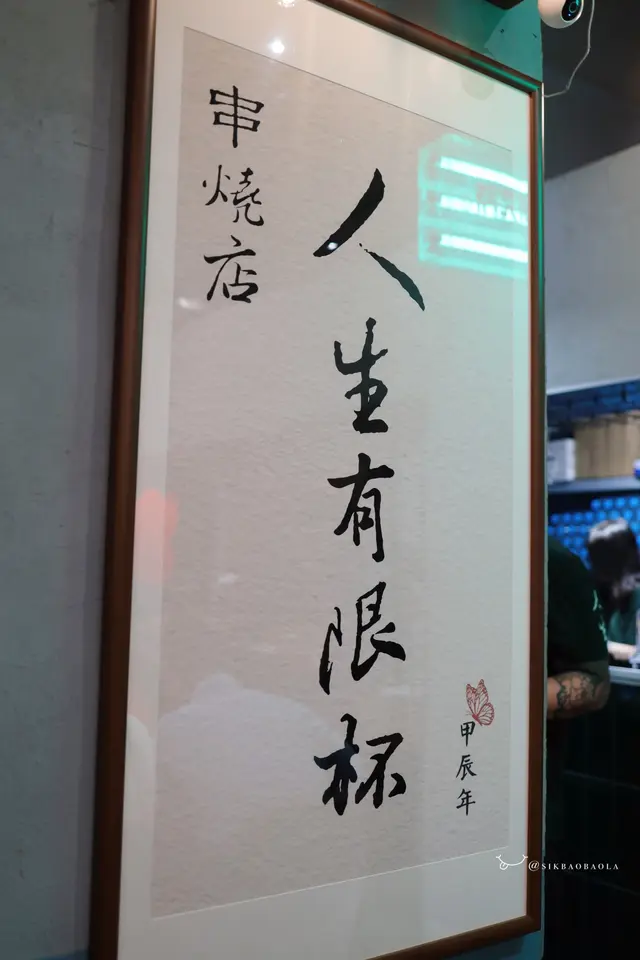 串燒店
人生有限杯
甲辰年
@SIKBAOBAOLA